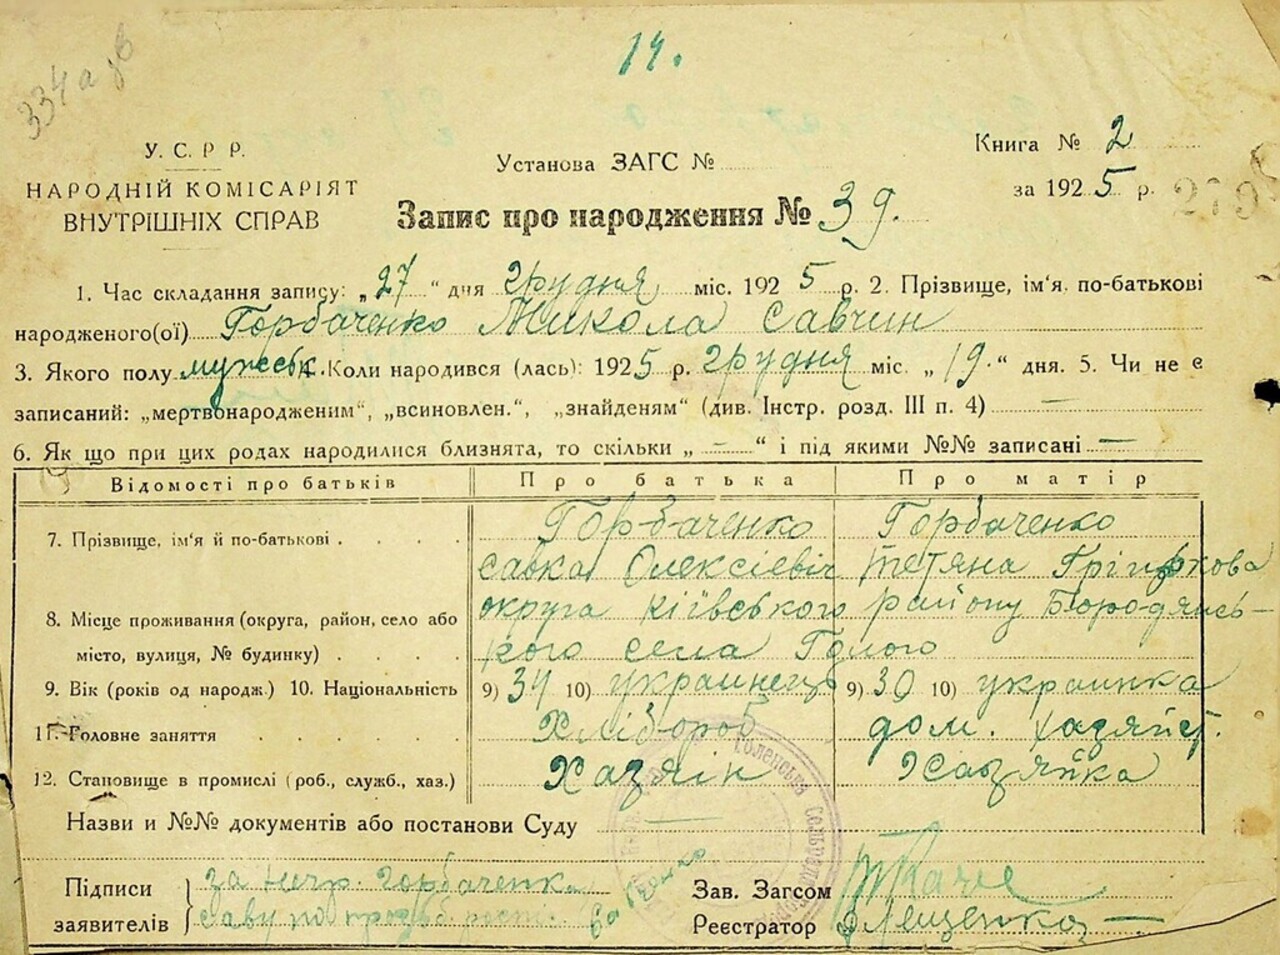 14.
334
У. С. Р Р.
НАРОДНІЙ КОМІСАРІЯТ
ВНУТРІШНІХ СПРАВ
Установа ЗАГС №
Книга № 2
за 1925 р.
Запис про народження № 39.
1. Час складання запису: „27“ дня грудня міс. 1925 р. 2. Прізвище, ім'я, по-батькові
народженого(ої) Горбаченко Микола Савчин
3. Якого полу мужеськ. Коли народився (лась): 1925 р. грудня міс. „19.“ дня. 5. Чи не є
записаний: „мертвонародженим“, „всиновлен.“, „знайденям“ (див. Інстр. розд. III п. 4) —
6. Як що при цих родах народилися близнята, то скільки „—“ і під якими №№ записані —
Відомості про батьків Про батька Про матір
7. Прізвище, ім'я й по-батькові . . . . Горбаченко Горбаченко
Савка Олексієвіч Тетяна
8. Місце проживання (округа, район, село або округа Київського району Бородянсь-
місто, вулиця, № будинку) . . . . кого села
9. Вік (років од народж.) 10. Національність 9) 34 10) украинець 9) 30 10) украинка
11. Головне заняття . . . . Хлібороб дом. хазяйст.
12. Становище в промислі (роб., служб., хаз.) Хазяін Хазяйка
Назви и №№ документів або постанови Суду —
Підписи за Горбаченка
заявителів Саву по
Зав. Загсом
Реєстратор Лещенко